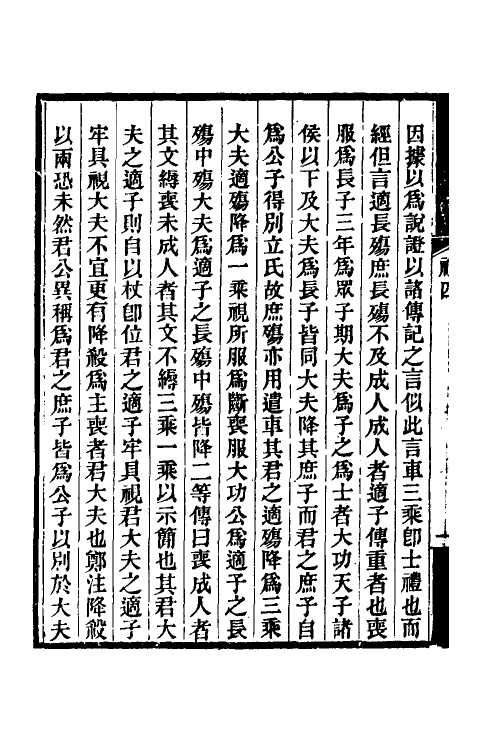 因據以爲說證以諸傳記之言似此言車三乘卽士禮也而
經但言適長殤庶長殤不及成人成人者適子傳重者也喪
服爲長子三年爲眾子期大夫爲子之爲士者大功天子諸
侯以下及大夫爲長子皆同大夫降其庶子而君之庶子自
爲公子得別立氏故庶殤亦用遣車其君之適殤降爲三乘
大夫適殤降爲一乘視所服爲斷喪服大功公爲適子之長
殤中殤大夫爲適子之長殤中殤皆降二等傳曰喪成人者
其文縟喪未成人者其文不縟三乘一乘以示簡也其君大
夫之適子則自以杖卽位君之適子牢具視君大夫之適子
牢具視大夫不宜更有降殺爲主喪者君大夫也鄭注降殺
以兩恐未然君公異稱爲君之庶子皆爲公子以別於大夫
禮四